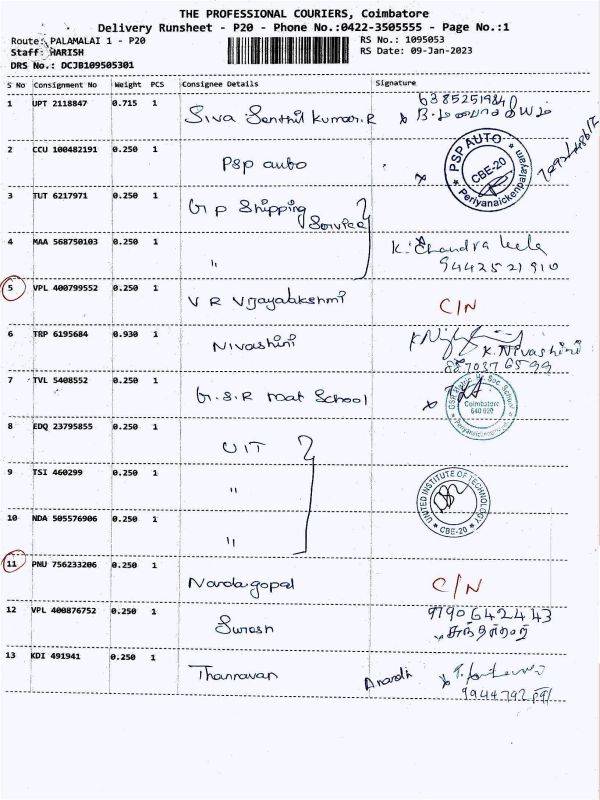 THE PROFESSIONAL COURIERS, Coimbatore
Delivery Runsheet - P20 - Phone No.:0422-3505555 - Page No.:1
Route: PALAMALAI 1 - P20 RS No.: 1095053
Staff: HARISH RS Date: 09-Jan-2023
DRS No.: DCJB109505301
S No Consignment No Weight PCS Consignee Details Signature
1 UPT 2118847 0.715 1 Siva Senthil Kumar.R
2 CCU 100482191 0.250 1 PSP auto PSP AUTO CBE-20 Periyanaickenpalayam
3 TUT 6217971 0.250 1 G p Shipping Service
4 MAA 568750103 0.250 1 " K. Chandra leela
9442521910
5 VPL 400799552 0.250 1 V R Vijayalakshmi C/N
6 TRP 6195684 0.930 1 Nivashini K.Nivashini
7 TVL 5408552 0.250 1 G.S.R mat School Coimbatore
8 EDQ 23795855 0.250 1 UIT
9 TSI 460299 0.250 1 " UNITED INSTITUTE OF TECHNOLOGY CBE-20
10 NDA 505576906 0.250 1 "
11 PNU 756233206 0.250 1 Nandagopal C/N
12 VPL 400876752 0.250 1 Suresh 9790642443
13 KDI 491941 0.250 1